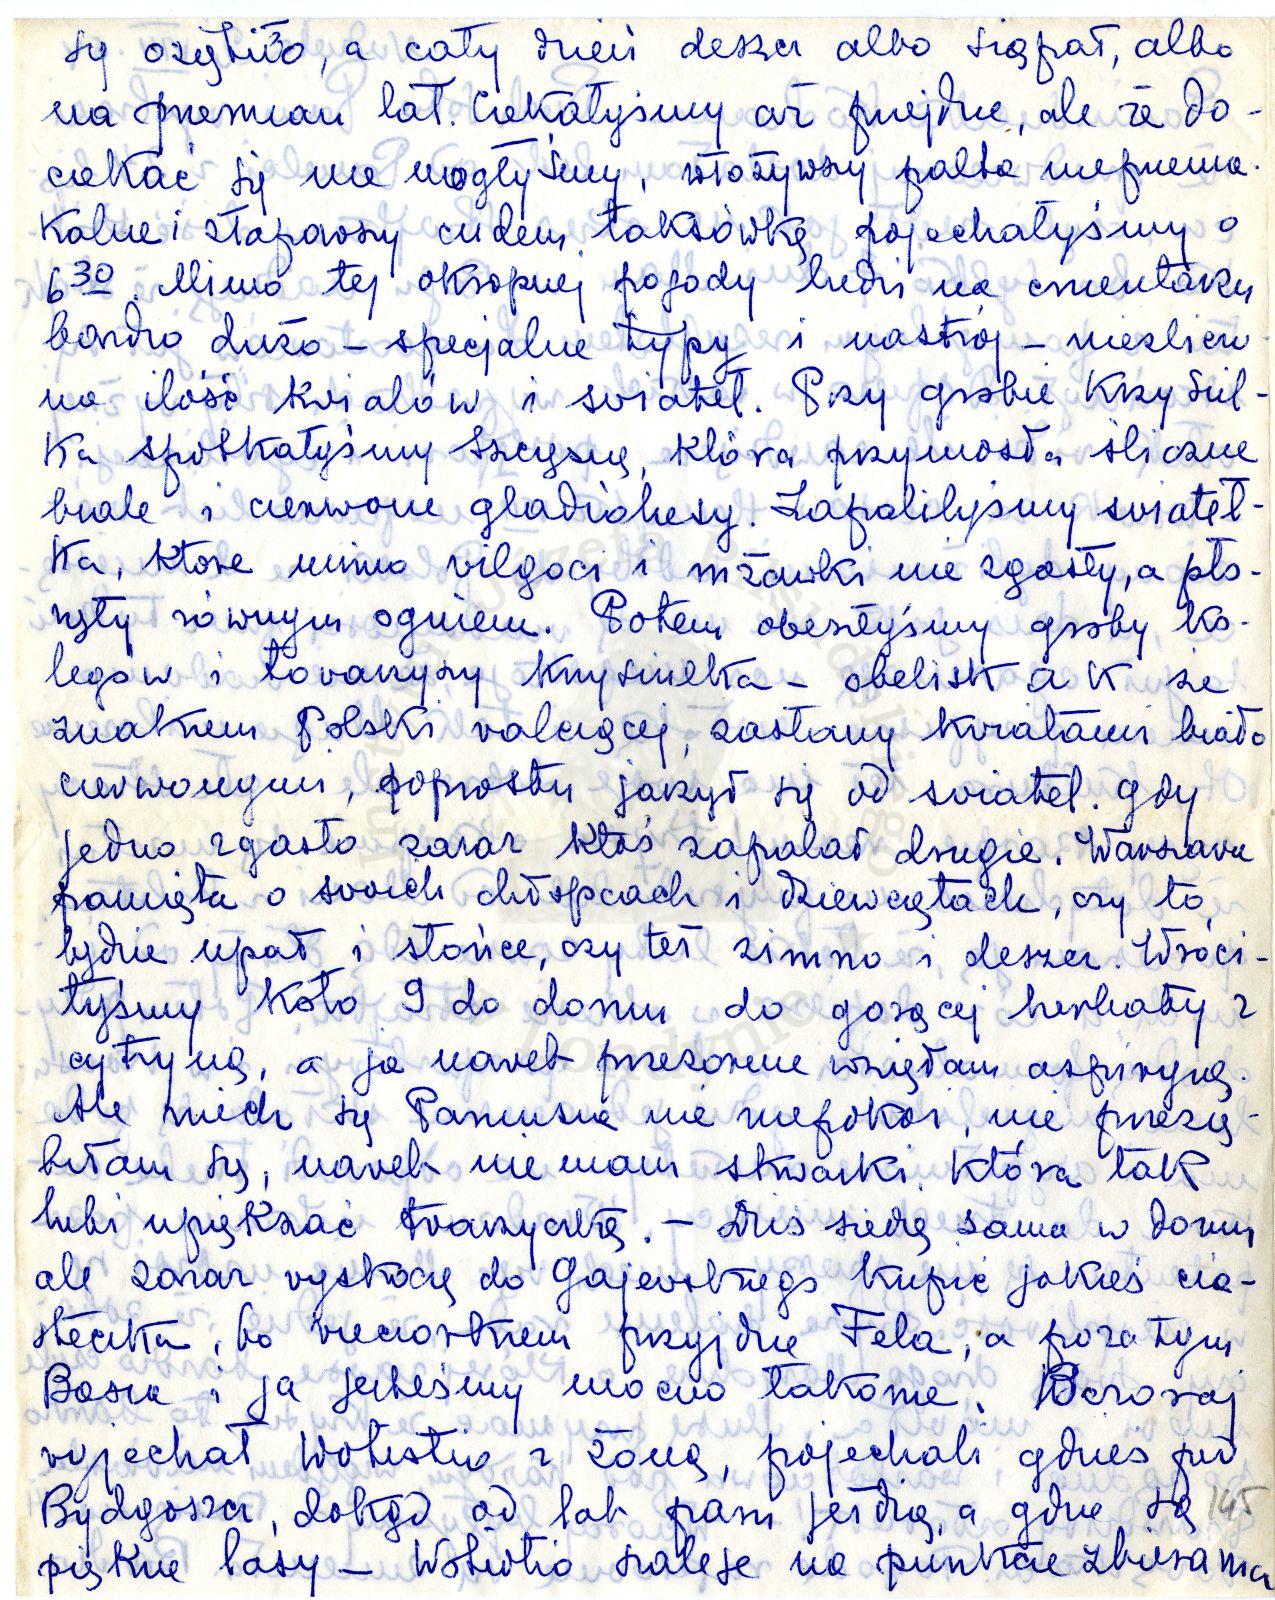 się oziębiło, a cały dzień deszcz albo siąpał, albo
na przemian lał. Czekałyśmy aż przejdzie, ale że do-
czekać się nie mogłyśmy, włożywszy palta nieprzema-
kalne i złapawszy cudem taksówkę pojechałyśmy o
6 30. Mimo tej okropnej pogody ludzi na cmentarzu
bardzo dużo – specjalne typy i nastrój – niezliczo-
na ilość kwiatów i świateł. Przy grobie Krzysiul-
ka spotkałyśmy Szczysię, która przyniosła śliczne
białe i czerwone gladiolusy. Zapaliłyśmy świateł-
ka, które mimo wilgoci i mżawki nie zgasły, a pło-
nęły równym ogniem. Potem obeszłyśmy groby ko-
legów i towarzyszy Krzysiulka – obelisk AK ze
znakiem Polski walczącej, zasłany kwiatami biało
czerwonymi, poprostu jarzył się od świateł. Gdy
jedno zgasło zaraz ktoś zapalał drugie. Warszawa
pamięta o swoich chłopcach i dziewczętach, czy to
będzie upał i słońce, czy też zimno i deszcz. Wróci-
łyśmy koło 9 do domu do gorącej herbaty z
cytryną, a ja nawet przezornie wzięłam aspirynę.
Ale niech się Paniusia nie niepokoi, nie przezię-
biłam się, nawet nie mam skwarki, która tak
lubi upiększać twarzyczkę. – Dziś siedzę sama w domu
ale zaraz wyskoczę do Gajewskiego kupić jakieś cia-
steczka, bo wieczorkiem przyjdzie Fela, a pozatym
Basia i ja jesteśmy mocno łakome. Wczoraj
wyjechał z żoną, pojechali gdzieś pod
Bydgoszcz, dokąd od lat paru jeżdżą, a gdzie są
piękne lasy – szaleje na punkcie zbierania
145